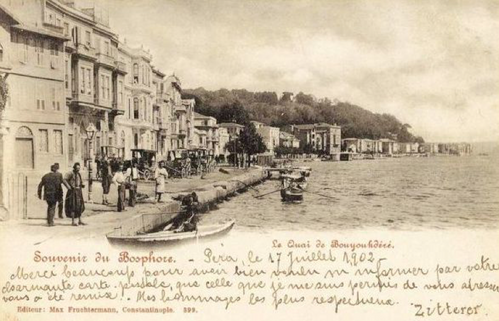 Le Quai de Bouyoukdéré.
Souvenir du Bosphore.
Pera, le 17 Juillet 1902
Merci beaucoup pour avoir bien voulu m'informer par votre
charmante carte postale, que celle que je me suis permis de vous adresser
vous a été remise! Mes hommages les plus respectueux
Zitterer
Editeur: Max Fruchtermann, Constantinople. 399.